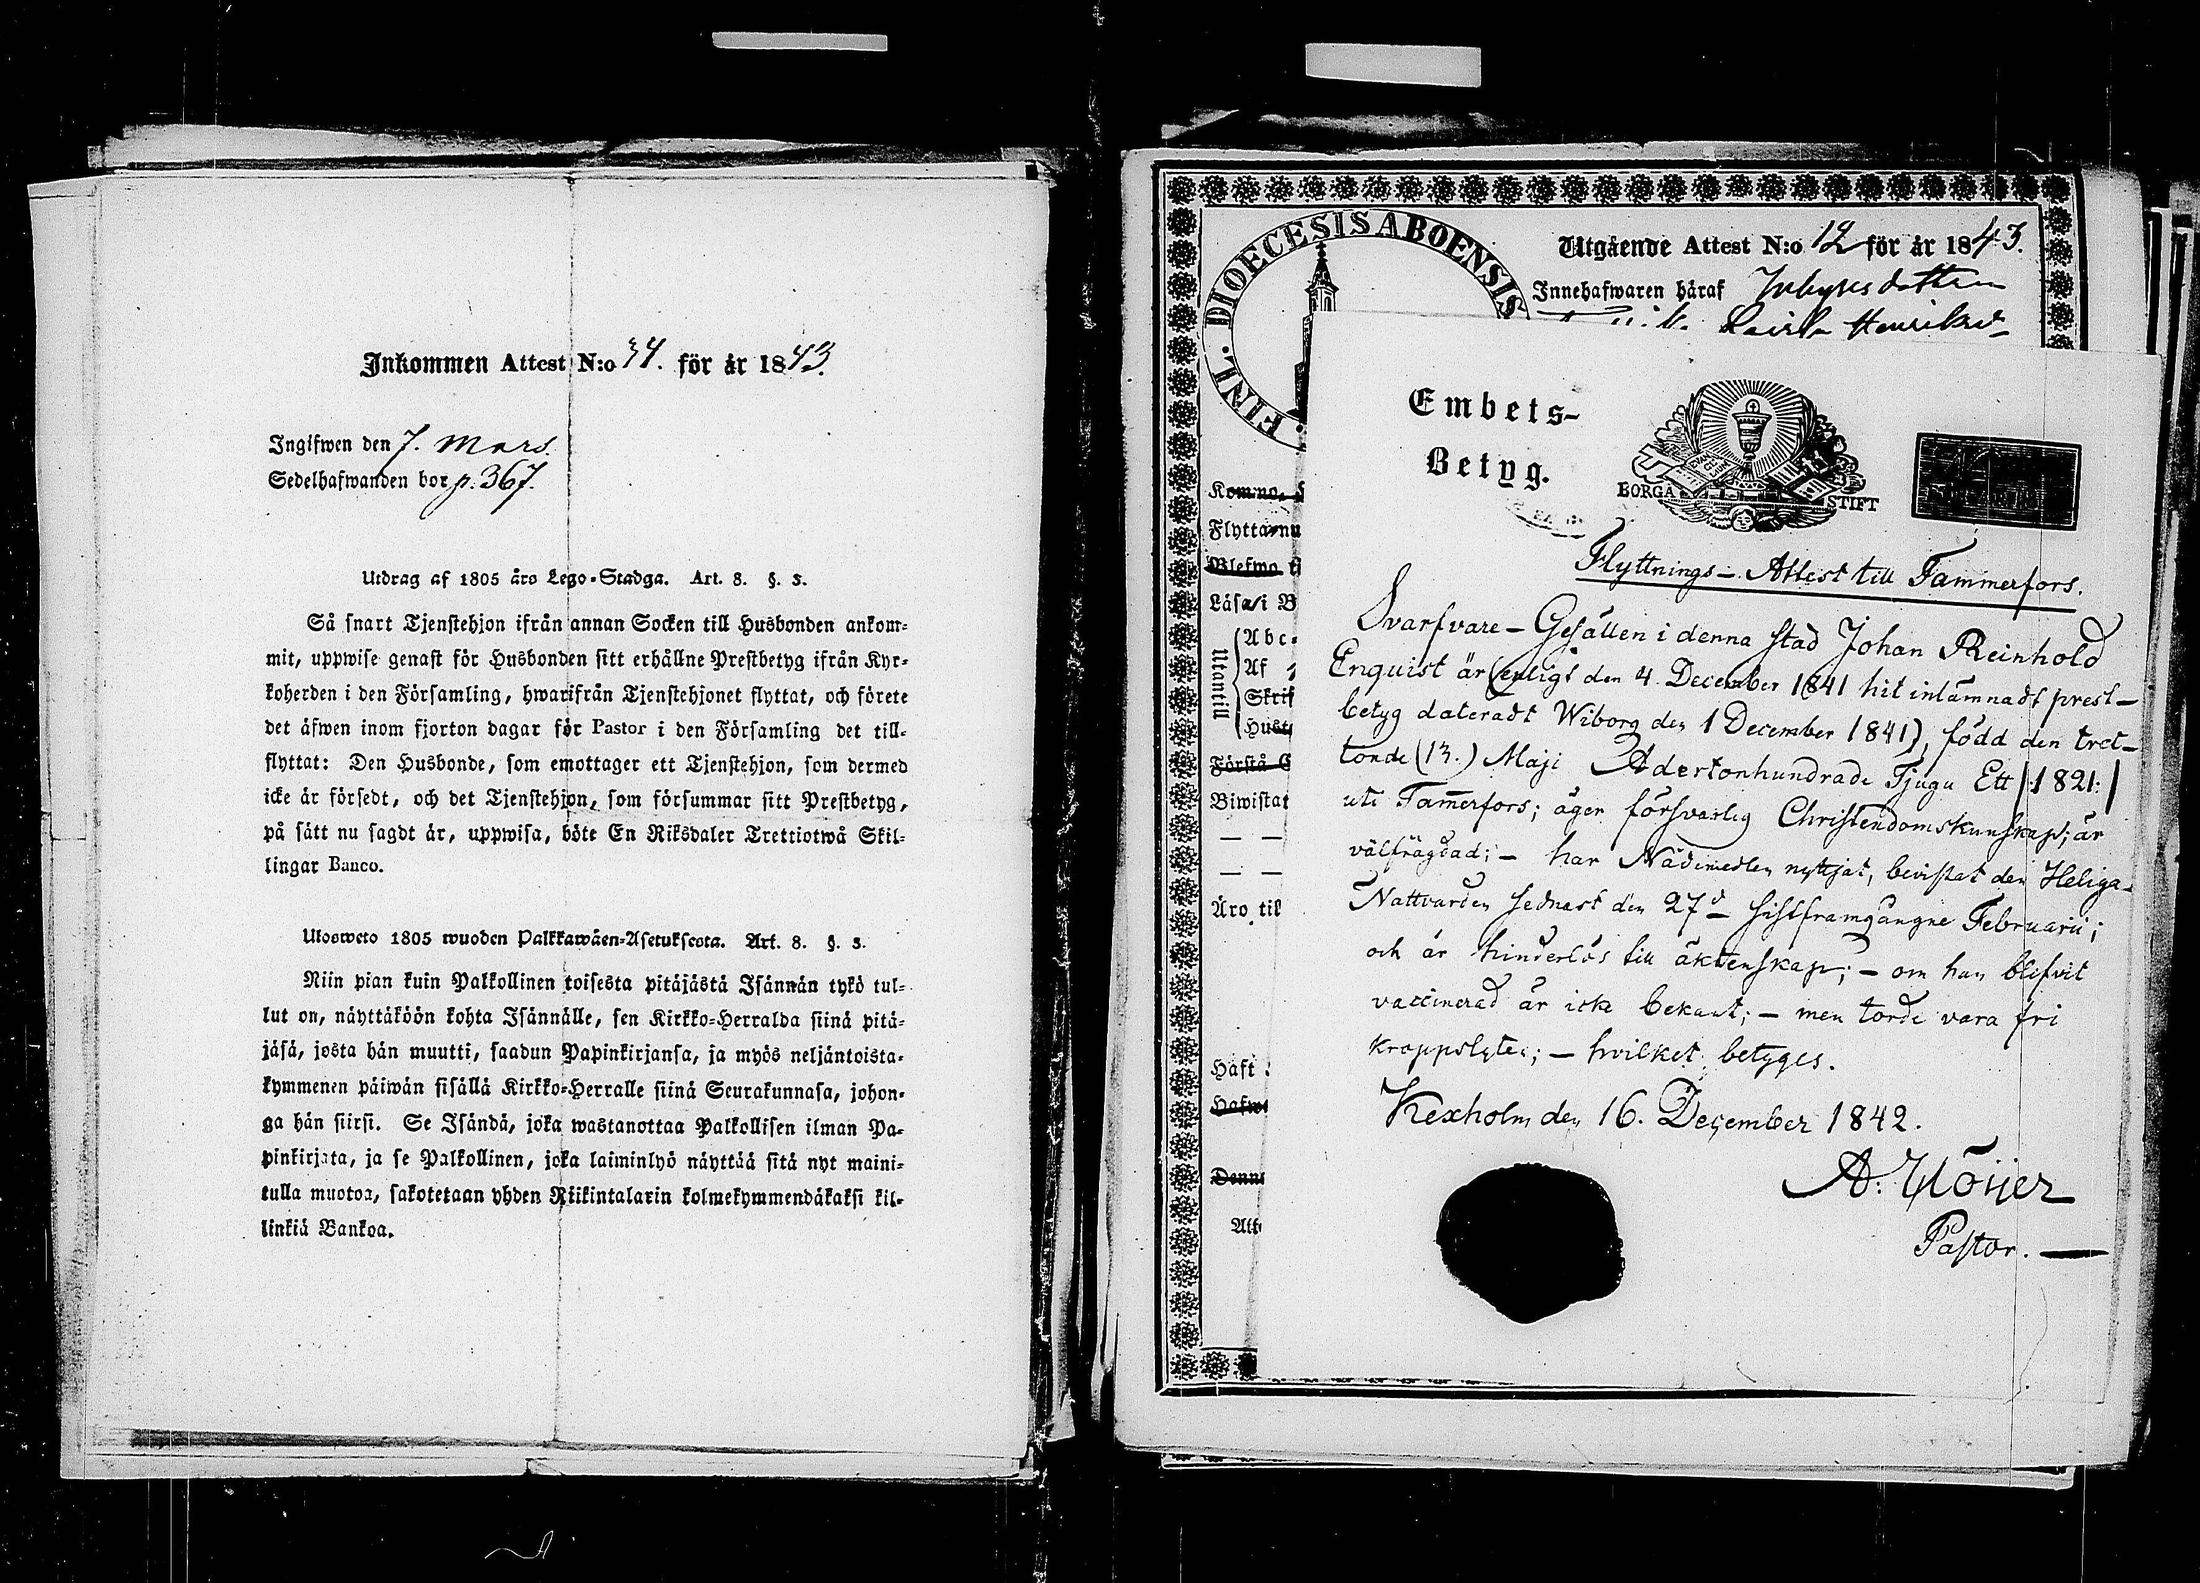 Inkommen Attest N:o 34. för år 1843.
Ingifwen den 7. Mars.
Sedelhafwanden bor p. 367.
Utdrag af 1805 års Lego-Stadga. Art. 8. §. 3.
Så snart Tjenstehjon ifrån annan Socken till Husbonden ankom-
mit, uppwise genast för Husbonden sitt erhållne Prestbetyg ifrån Kyr-
koherden i den Församling, hwarifrån Tjenstehjonet flyttat, och förete
det äfwen inom fjorton dagar för Pastor i den Församling det till-
flyttat: Den Husbonde, som emottager ett Tjenstehjon, som dermed
icke är försedt, och det Tjenstehjon, som försummar sitt Prestbetyg,
på sätt nu sagdt är, uppwisa, böte En Riksdaler Trettiotwå Skil-
lingar Banco.
Ulosweto 1805 wuoden Palkkawäen-Asetuksesta. Art. 8. §. 3.
Niin pian kuin Palkollinen toisesta pitäjästä Isännän tykö tul-
lut on, näyttäköön kohta Isännälle, sen Kirkko-Herralda siinä pitä-
jäsä, josta hän muutti, saadun Papinkirjansa, ja myös neljäntoista-
kymmenen päiwän sisällä Kirkko-Herralle siinä Seurakunnasa, johon-
ga hän siirsi. Se Isändä, joka wastanottaa Palkollisen ilman Pa-
pinkirjata, ja se Palkollinen, joka laiminlyö näyttää sitä nyt maini-
tulla muotoa, sakotetaan yhden Riikintalarin kolmekymmendäkaksi kil-
linkiä Bankoa.
FINL. DIOECESIS ABOENSIS
Utgående Attest N:o 12 för år 1843.
Innehafwaren häraf Inhysesdottren
Henriksd
Embets-
Betyg.
BORGÅ STIFT
Flyttarnu
Läsa i B
Utantill
Abc-
Af
Skrif
Hust
Förstå C
Biwistat
Äro til
Häft
Hafwa
Denna
Att
Flyttnings-Attest till Tammerfors.
Svarfvare-Gesällen i denna stad Johan Reinhold
Enquist är (enligt den 4. December 1841 hit inlämnadt prest-
betyg dateradt Wiborg den 1 December 1841), född den tret-
tonde (13.) Maji Adertonhundrade Tjugu Ett /:1821:/
uti Tamerfors; äger försvarlig Christendomskunskap; är
välfrägdad; - har Nådemedlen nyttjat, bevistat den Heliga
Nattvarden sednast den 27d sistframgångne Februarii;
och är hinderlös till äktenskap; - om han blifvit
vaccinerad är icke bekant; - men torde vara fri
kroppslyten; - hvilket betyges.
Kexholm den 16. December 1842.
A. Höijer
Pastor.